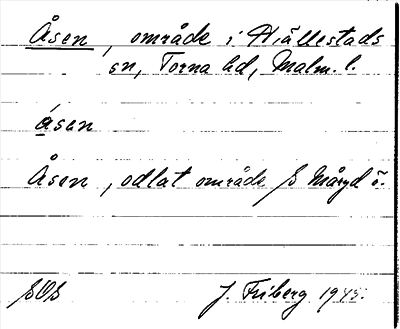 Åsen, område i Hällestads
sn, Torna hd, Malm. l.
åsen
Åsen, odlat område S Måryd ö.
SOS J. Friberg 1945.